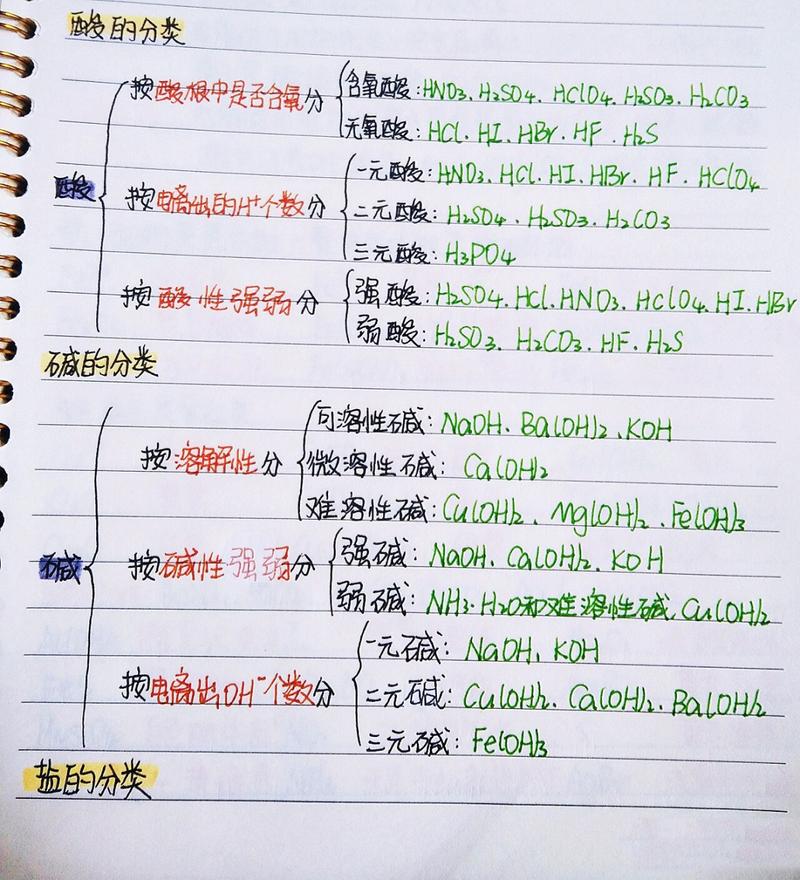 酸的分类
按酸根中是否含氧分
含氧酸：HNO₃、H₂SO₄、HClO₄、H₂SO₃、H₂CO₃
无氧酸：HCl、HI、HBr、HF、H₂S
酸
按电离出的H⁺个数分
一元酸：HNO₃、HCl、HI、HBr、HF、HClO₄
二元酸：H₂SO₄、H₂SO₃、H₂CO₃
三元酸：H₃PO₄
按酸性强弱分
强酸：H₂SO₄、HCl、HNO₃、HClO₄、HI、HBr
弱酸：H₂SO₃、H₂CO₃、HF、H₂S
碱的分类
按溶解性分
可溶性碱：NaOH、Ba(OH)₂、KOH
微溶性碱：Ca(OH)₂
难溶性碱：Cu(OH)₂、Mg(OH)₂、Fe(OH)₃
碱
按碱性强弱分
强碱：NaOH、Ca(OH)₂、KOH
弱碱：NH₃·H₂O和难溶性碱、Cu(OH)₂
按电离出OH⁻个数分
一元碱：NaOH、KOH
二元碱：Cu(OH)₂、Ca(OH)₂、Ba(OH)₂
三元碱：Fe(OH)₃
盐的分类